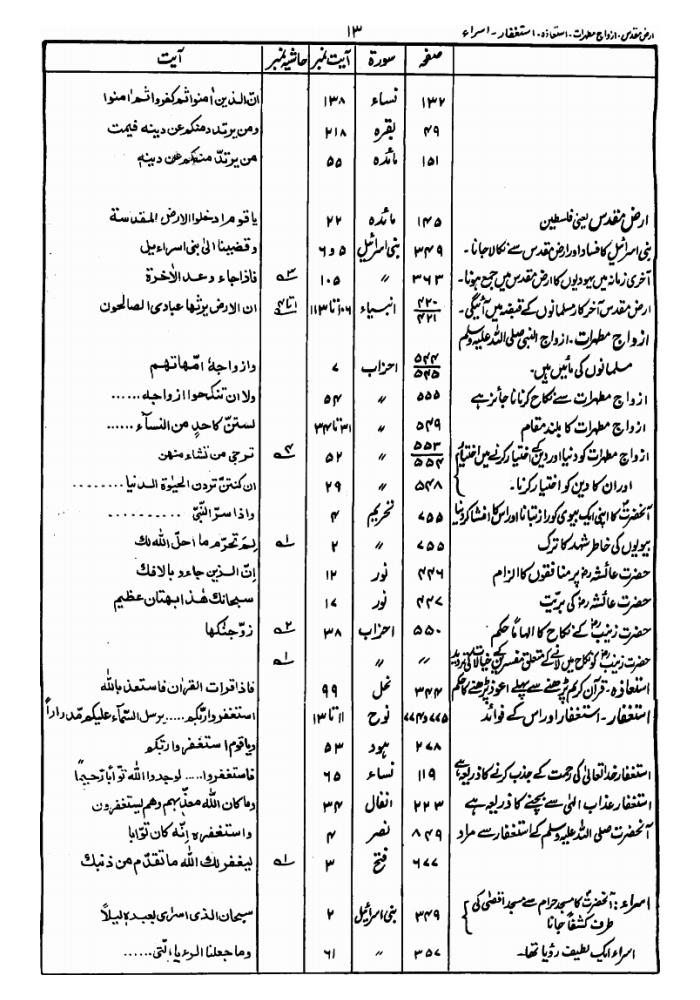 ارض مقدس۔ ازواج مطہرات۔ استعاذہ۔ استغفار۔ اسراء ۱۳
صفحہ سورۃ آیت نمبر حاشیہ نمبر آیت
۱۳۲ نساء ۱۳۸ انّ الذین اٰمنوا ثم کفروا ثم اٰمنوا
۴۹ بقرہ ۲۱۸ ومن یرتدد منکم عن دینہ فیمت
۱۵۱ مائدہ ۵۵ من یرتدّ منکم عن دینہٖ
ارض مقدس یعنی فلسطین ۱۴۵ مائدہ ۲۲ یاقوم ادخلوا الارض المقدسۃ
بنی اسرائیل کا فساد اور ارض مقدس سے نکالا جانا۔ ۳۴۹ بنی اسرائیل ۵و۶ وقضینا الیٰ بنی اسراءیل
آخری زمانہ میں یہودیوں کا ارض مقدس میں جمع ہونا۔ ۳۶۳ 〃 ۱۰۵ ۳؎ فاذاجاء وعد الاٰخرۃ
ارض مقدس آخر کار مسلمانوں کے قبضہ میں آئیگی۔ ۴۲۰/۴۲۱ انبیاء ۱۰۶تا۱۱۳ ۱تا۴؎ ان الارض یرثھا عبادی الصالحون
ازواج مطہرات۔ ازواج النبی صلی اللہ علیہ وسلم
مسلمانوں کی مائیں ہیں۔ ۵۴۴/۵۴۵ احزاب ۷ وازواجہٗ امّھاتھم
ازواج مطہرات سے نکاح کرنا ناجائز ہے ۵۵۵ 〃 ۵۴ ولا ان تنکحوا ازواجہ ......
ازواج مطہرات کا بلند مقام ۵۴۹ 〃 ۳۱تا۳۴ لستنّ کاحدٍ من النسآء ......
ازواج مطہرات کو دنیا اور دین کے اختیار کرنے میں اختیار ۵۵۳/۵۵۴ 〃 ۵۲ ۴؎ ترجی من تشاء منھن
اور ان کا دین کو اختیار کرنا۔ ۵۴۸ 〃 ۲۹ ان کنتنّ تردن الحیٰوۃ الدنیا .........
آنحضرتؐ کا اپنی ایک بیوی کو راز بتانا اور اس کا افشا کر دینا ۷۵۵ تحریم ۴ واذا سرّ النبّی ..........
بیویوں کی خاطر شہد کا ترک ۷۵۵ 〃 ۲ ۱؎ لِمَ تحرّم ما احلّ اللہ لک
حضرت عائشہؓ پر منافقوں کا الزام ۴۴۶ نور ۱۲ انّ الذین جاءو بالافک
حضرت عائشہؓ کی بریّت ۴۴۷ نور ۱۷ سبحانک ھٰذا بھتان عظیم
حضرت زینبؓ کے نکاح کا الہاماً حکم ۵۵۰ احزاب ۳۸ ۲؎ زوّجنٰکھا
حضرت زینبؓ کو نکاح میں لانے کے متعلق مفسرین کے خیالات کی تردید 〃 〃 〃 ۱؎
استعاذہ۔ قرآن کریم پڑھنے سے پہلے اعوذ پڑھنے کا حکم ۳۴۴ نحل ۹۹ فاذا قرات القراٰن فاستعذ باللہ
استغفار۔ استغفار اور اس کے فوائد ۷۷۵و۷۷۴ نوح ۱۱تا۱۳ استغفروا ربّکم .....یرسل السّمآء علیکم مّدراراً
۲۷۸ ہود ۵۳ ویاقوم استغفروا ربّکم
استغفار خدا تعالیٰ کی رحمت کے جذب کرنے کا ذریعہ ہے ۱۱۹ نساء ۶۵ فاستغفروا..... لوجدوا اللہ توّاباً رّحیماً
استغفار عذاب الٰہی سے بچنے کا ذریعہ ہے ۲۲۳ انفال ۳۴ وما کان اللہ معذّبھم وھم یستغفرون
آنحضرت صلی اللہ علیہ وسلم کے استغفار سے مراد ۸۴۹ نصر ۴ واستغفرہ اِنّہ کان توّابا
۶۷۷ فتح ۳ ۱؎ لیغفر لک اللہ ما تقدّم من ذنبک
اسراء: آنحضرتؐ کا مسجد حرام سے مسجد اقصٰی کی
طرف کشفاً جانا ۳۴۹ بنی اسرائیل ۲ سبحان الذی اسرٰی بعبدہٖ لیلاً
اسراء ایک لطیف رؤیا تھا۔ ۳۵۷ 〃 ۶۱ وما جعلنا الرءیا الّتی ......